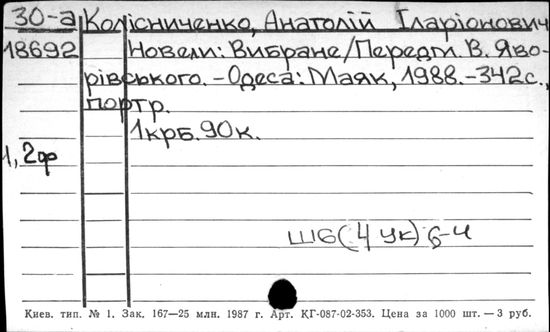 30-а Колісниченко, Анатолій Іларіонович
18692 Новели: Вибране/Передм. В. Яво-
рівського. - Одеса: Маяк, 1988. - 342с.,
портр.
1крб. 90к.
1,2ф
Ш6(4 Ук) 6-4
Киев. тип. № 1. Зак. 167—25 млн. 1987 г. Арт. КГ-087-02-353. Цена за 1000 шт. — 3 руб.